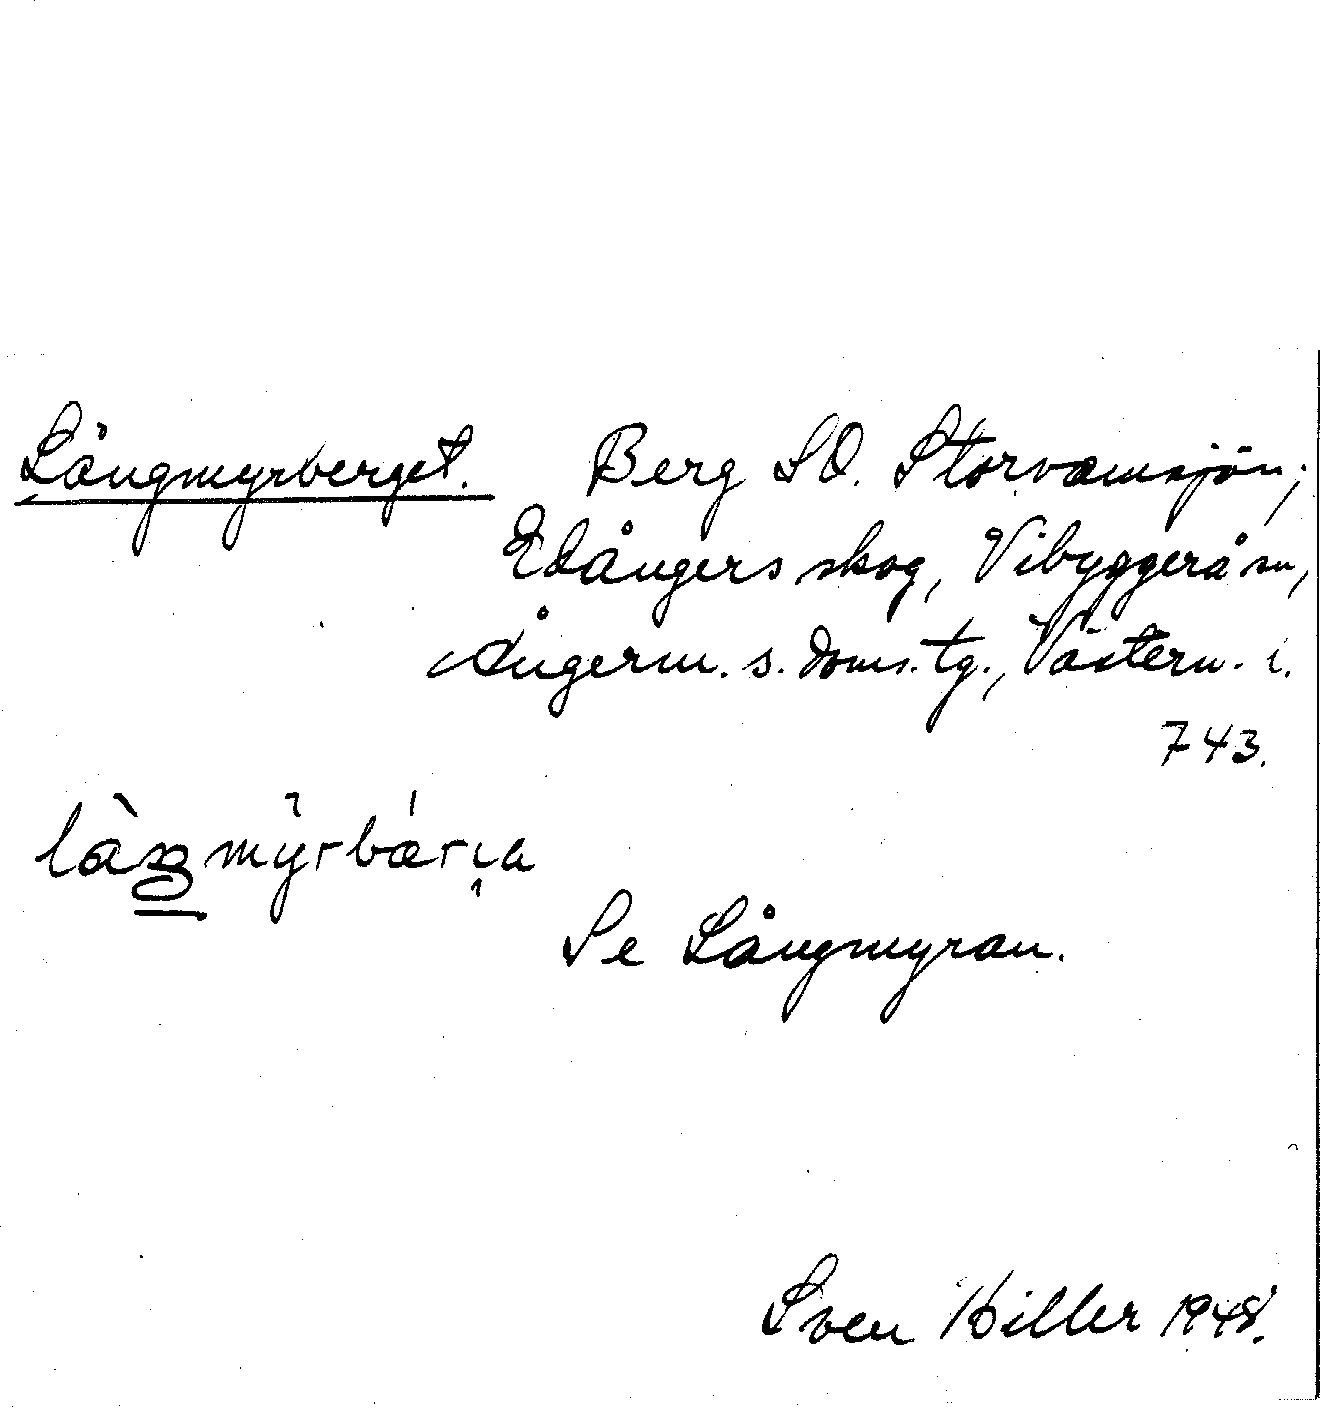 Långmyrberget. Berg SO. Storvamsjön;
Edångers skog, Vibyggerå sn,
Ångerm. s. doms. tg., Västern. l.
743.
Se Långmyran.
Sven Hiller 1948.